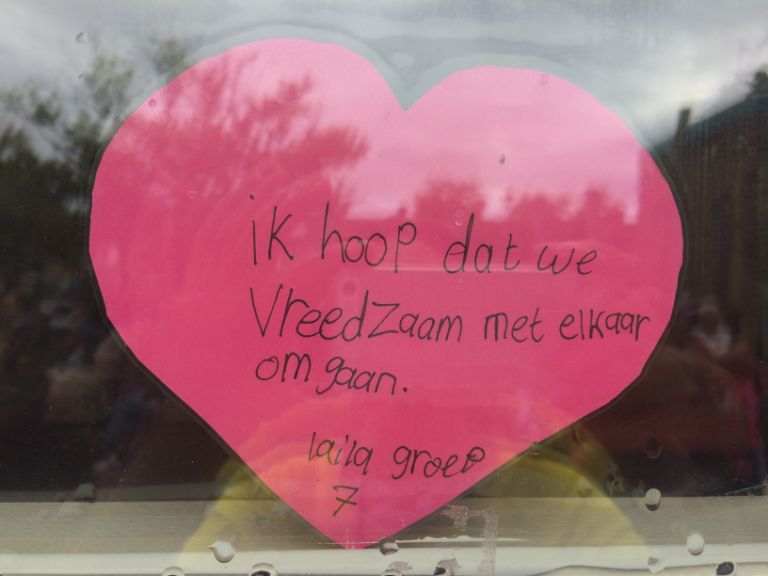 ik hoop dat we
Vreedzaam met elkaar
om gaan.
laila groep
7